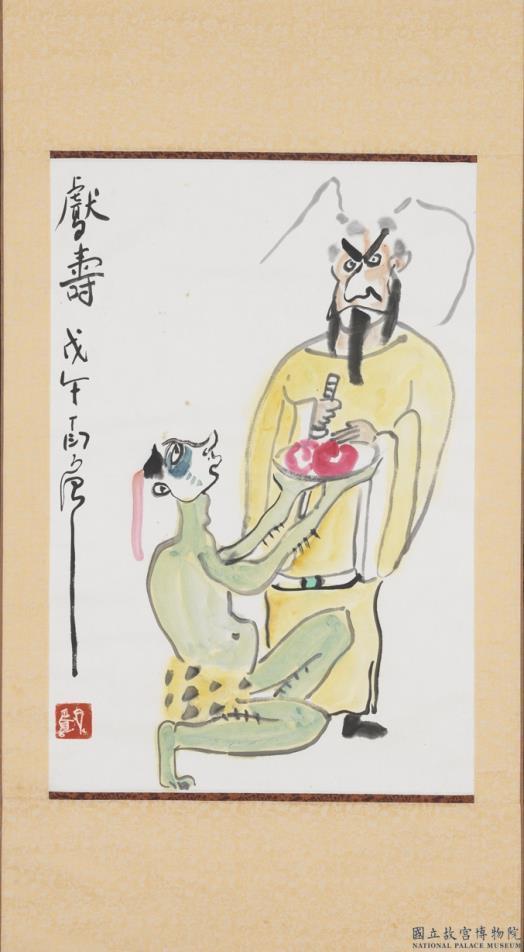 獻壽 戊午 丁衍庸
國立故宮博物院
NATIONAL PALACE MUSEUM